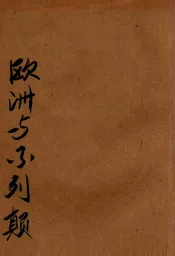 欧洲与不列颠